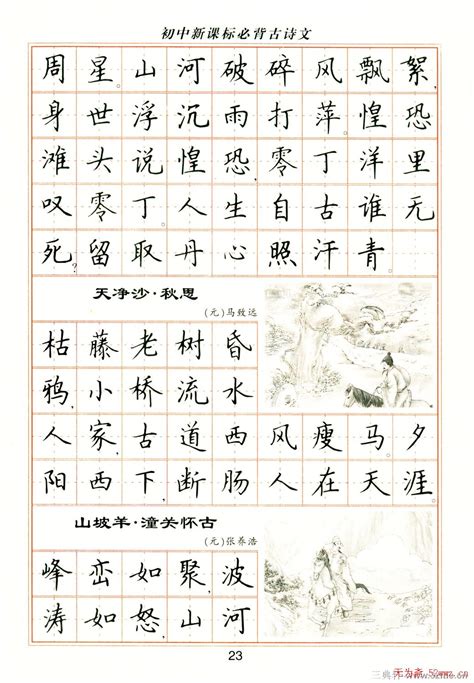 初中新课标必背古诗文
周星。山河破碎风飘絮,
身世浮沉雨打萍。惶恐
滩头说惶恐,零丁洋里
叹零丁。人生自古谁无
死?留取丹心照汗青。
天净沙·秋思
(元)马致远
枯藤老树昏
鸦,小桥流水
人家,古道西风瘦马。夕
阳西下,断肠人在天涯。
山坡羊·潼关怀古
(元)张养浩
峰峦如聚,波
涛如怒,山河
23